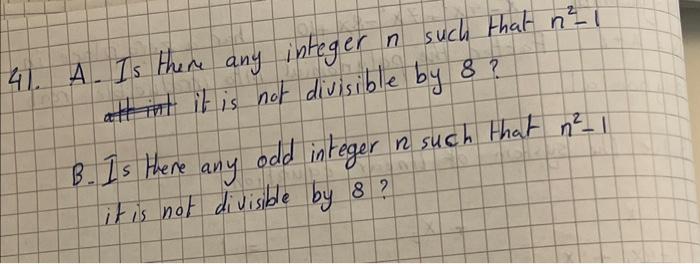 41. A- Is there any integer n such that n²-1
it is not divisible by 8 ?
B- Is there any odd integer n such that n²-1
it is not divisible by 8 ?